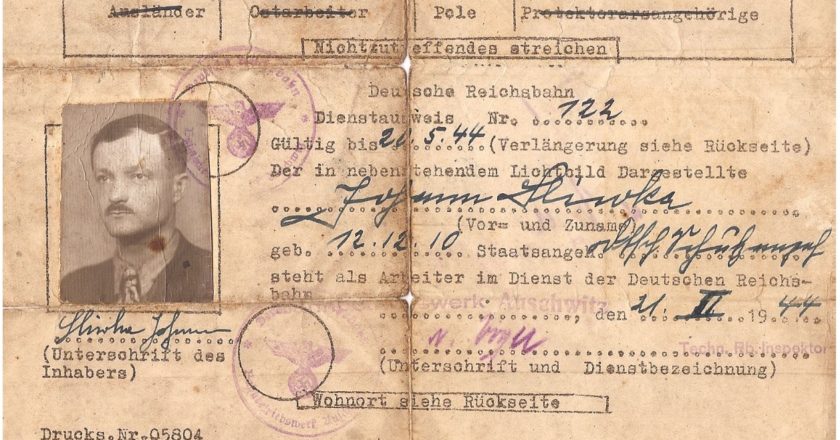 Ausländer Ostarbeiter Pole Protektorarsangehörige
Nichtzutreffendes streichen
Deutsche Reichsbahn
Dienstausweis Nr. 122
Gültig bis 20.5.44 (Verlängerung siehe Rückseite)
Der in nebenstehendem Lichtbild Dargestellte
Johann Sliwka
(Vor= und Zuname)
geb. 12.12.10 Staatsangeh.
steht als Arbeiter im Dienst der Deutschen Reichs-
bahn
Auschwitz, den 21. II 1944
Techn. Rb. Inspektor
Sliwka Johann
(Unterschrift des
Inhabers)
(Unterschrift und Dienstbezeichnung)
Wohnort siehe Rückseite
Drucks.Nr.05804